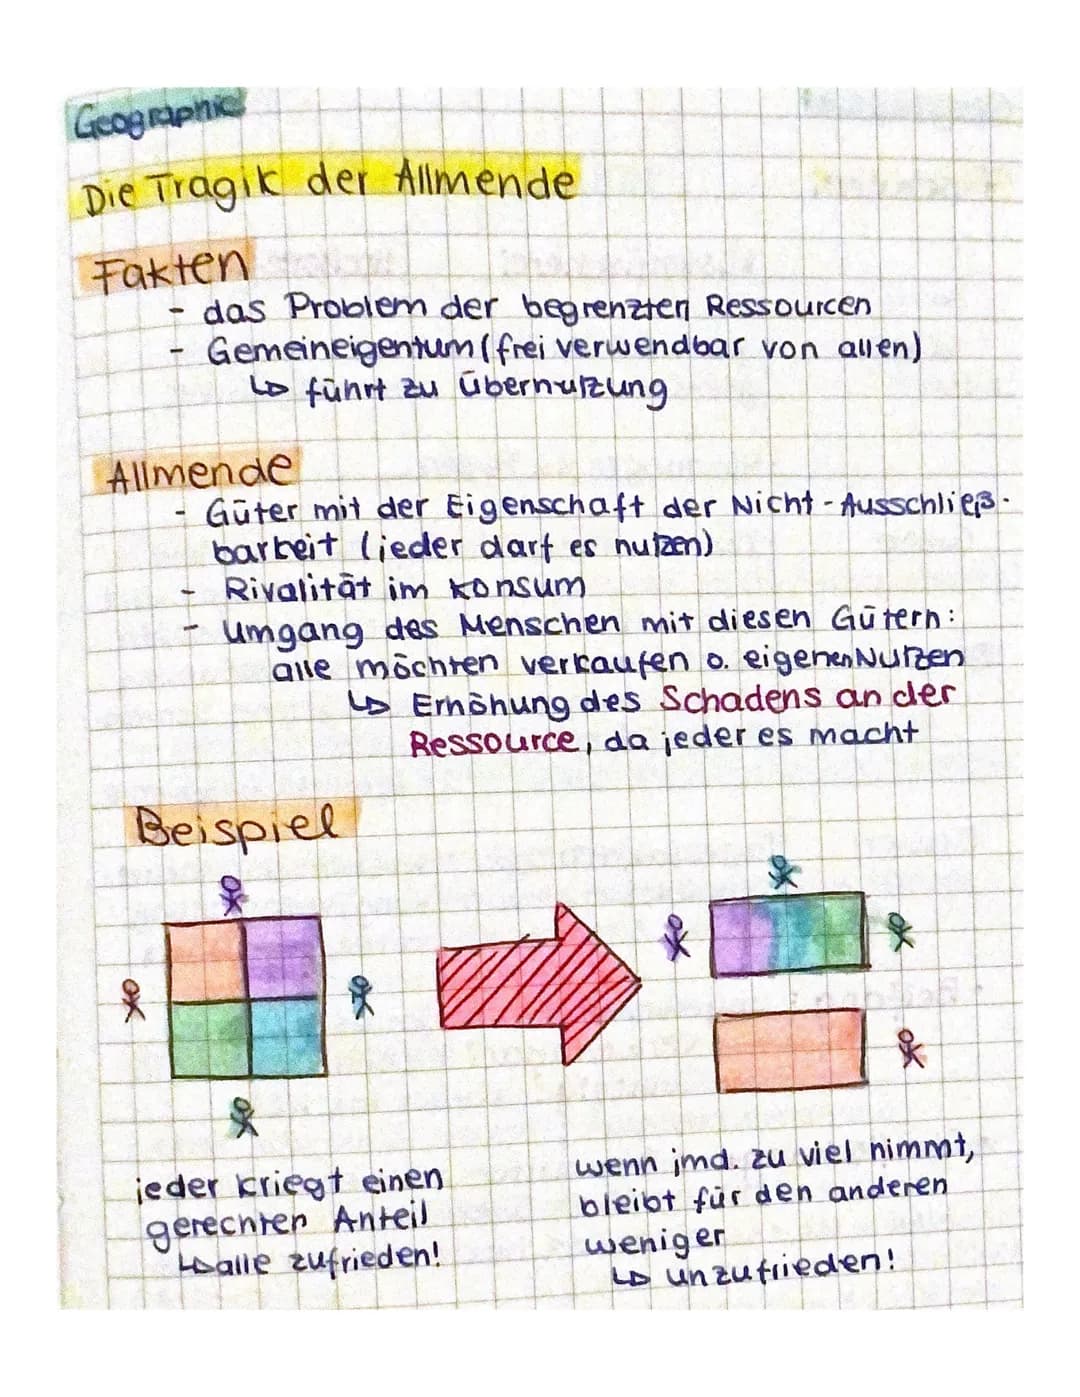 Geographie
Die Tragik der Allmende
Fakten
- das Problem der begrenzten Ressourcen
- Gemeineigentum (frei verwendbar von allen)
↳ führt zu Übernutzung
Allmende
- Güter mit der Eigenschaft der Nicht-Ausschließ-
barkeit (jeder darf es nutzen)
- Rivalität im Konsum
- Umgang des Menschen mit diesen Gütern:
alle möchten verkaufen o. eigenen Nutzen
↳ Erhöhung des Schadens an der
Ressource, da jeder es macht
Beispiel
jeder kriegt einen
gerechten Anteil
↳ alle zufrieden!
wenn jmd. zu viel nimmt,
bleibt für den anderen
weniger
↳ unzufrieden!